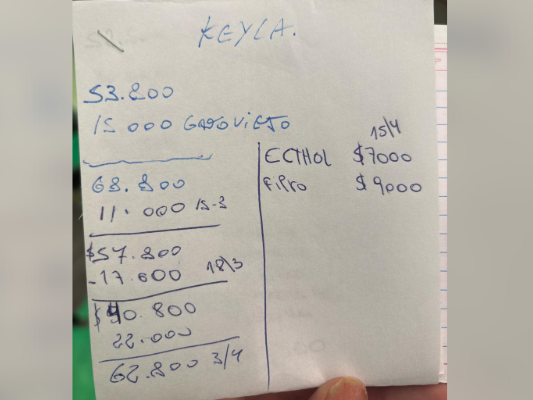 KEYLA.
53.800
15 000 GATO VIEJO
68.800
11.000 15-3
$57.800
-17.000 18/3
$40.800
22.000
62.800 3/4
15/4
ECTHOL $7000
FiPro $9000